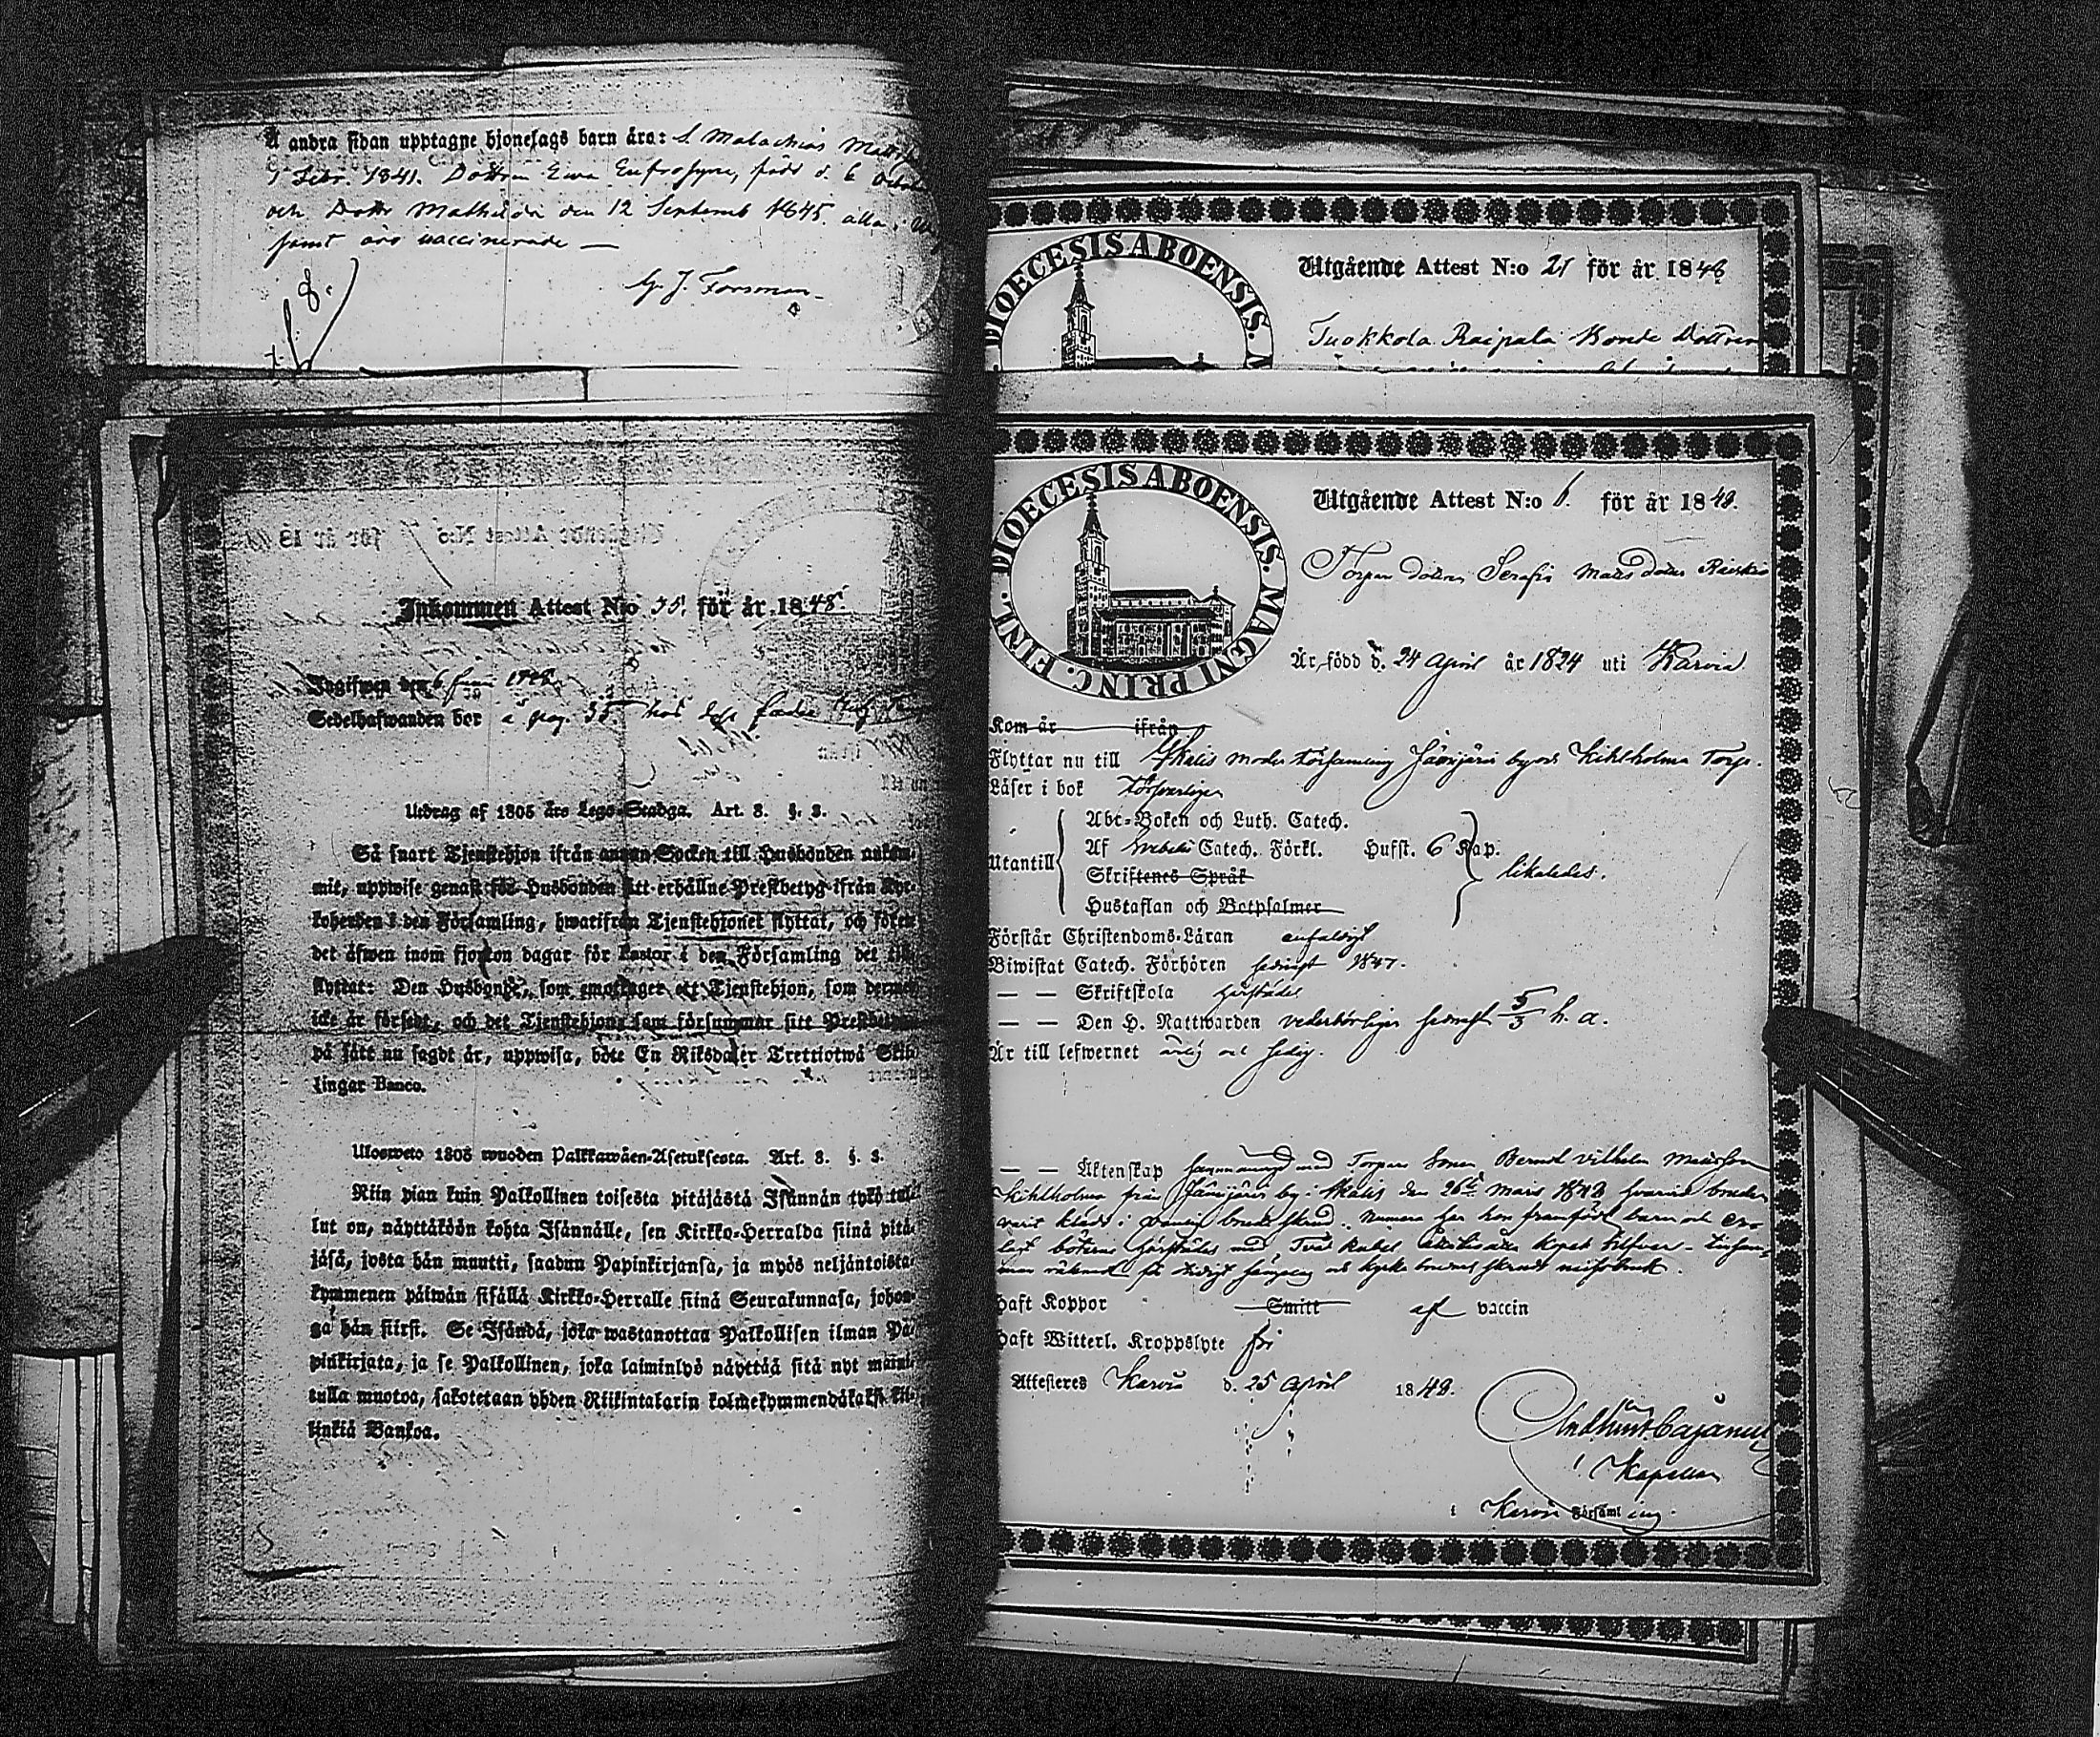 Å andra sidan upptagne hjonelags barn äro: S. Malachias
9 Febr. 1841. Dottren Eva Eufrosyne, född d. 6
och Dottr Mathilda den 12 Septemb 1845. alla i
samt äro vaccinerade —
G. J. Forsman
8.
Inkommen Attest N:o 35. för år 1848.
Ingifwen den 6 1848.
Sedelhafwanden bor å pag. 35 hos
Utdrag af 1805 års Lego-Stadga. Art. 3. §. 3.
Så snart Tjenstehjon ifrån annan Socken till Husbonden ankom-
mit, uppwise genast för Husbonden sitt erhållne Prestbetyg ifrån Kyr-
koherden i den Församling, hwarifrån Tjenstehjonet flyttat, och
det äfwen inom fjorton dagar för Pastor i den Församling det
flyttat: Den Husbonde, som emottager ett Tjenstehjon, som dermed
icke är försedt, och det Tjenstehjon, som försummar sitt
på sätt nu sagdt är, uppwisa, böte En Riksdaler Trettiotwå Skil-
lingar Banco.
Ulosweto 1805 wuoden Palkkawäen-Asetuksesta. Art. 3. §. 3.
Niin pian kuin Palkollinen toisesta pitäjästä Isännän tykö tul-
lut on, näyttäköön kohta Isännälle, sen Kirkko-Herralda siinä pitä-
jäsä, josta hän muutti, saadun Papinkirjansa, ja myös neljäntoista-
kymmenen päiwän sisällä Kirkko-Herralle siinä Seurakunnasa, johon-
ga hän siirst. Se Isändä, joka wastanottaa Palkollisen ilman Pa-
pinkirjata, ja se Palkollinen, joka laiminlyö näyttää sitä nyt maini-
tulla muotoa, sakotetaan yhden Riikintalarin kolmekymmendäkaksi kil-
linkiä Bankoa.
DIOECESIS ABOENSIS.
Utgående Attest N:o 21 för år 1848
Tuokkola Raipala Bonde Dottren
DIOECESIS ABOENSIS. MAGNI PRINC. FINL.
Utgående Attest N:o 6. för år 1848.
Torpare dottren Serafia Matsdotter
Är född d. 24 April år 1824 uti Karvia
Kom år ifrån
Flyttar nu till Ikalis moder församling Jämijärvi by och Kihlholma Torp.
Läser i bok försvarligen
Utantill
Abc-Boken och Luth. Catech.
Af Svebelii Catech. Förkl. Hufst. 6 Kap.
Skriftenes Språk
Hustaflan och Botpsalmer
likaledes.
Förstår Christendoms-Läran enfaldigt
Biwistat Catech. Förhören sednast 1847.
— — Skriftskola härstädes
— — Den H. Nattwarden vederbörligen sednast 5/3 h. a.
Är till lefwernet ärlig och sedig.
— — Äktenskap med Torpare Sonen Bernd Vilhelm Matsson
Kihlholma från Jämijärvi by i Ikalis den 26te Mars 1848 hvarvid bruden
varit klädd i brudeskrud. Numera har hon framfödt barn och
lagt böterne härstädes med Två Rubel kopek silfver
för och brudeskruds missbruk.
Haft Koppor Smitt af vaccin
Haft Witterl. Kroppslyte fri
Attesteras Karvia d. 25 April 1848.
Cajanus
Kapellan
i Karvia Församling.